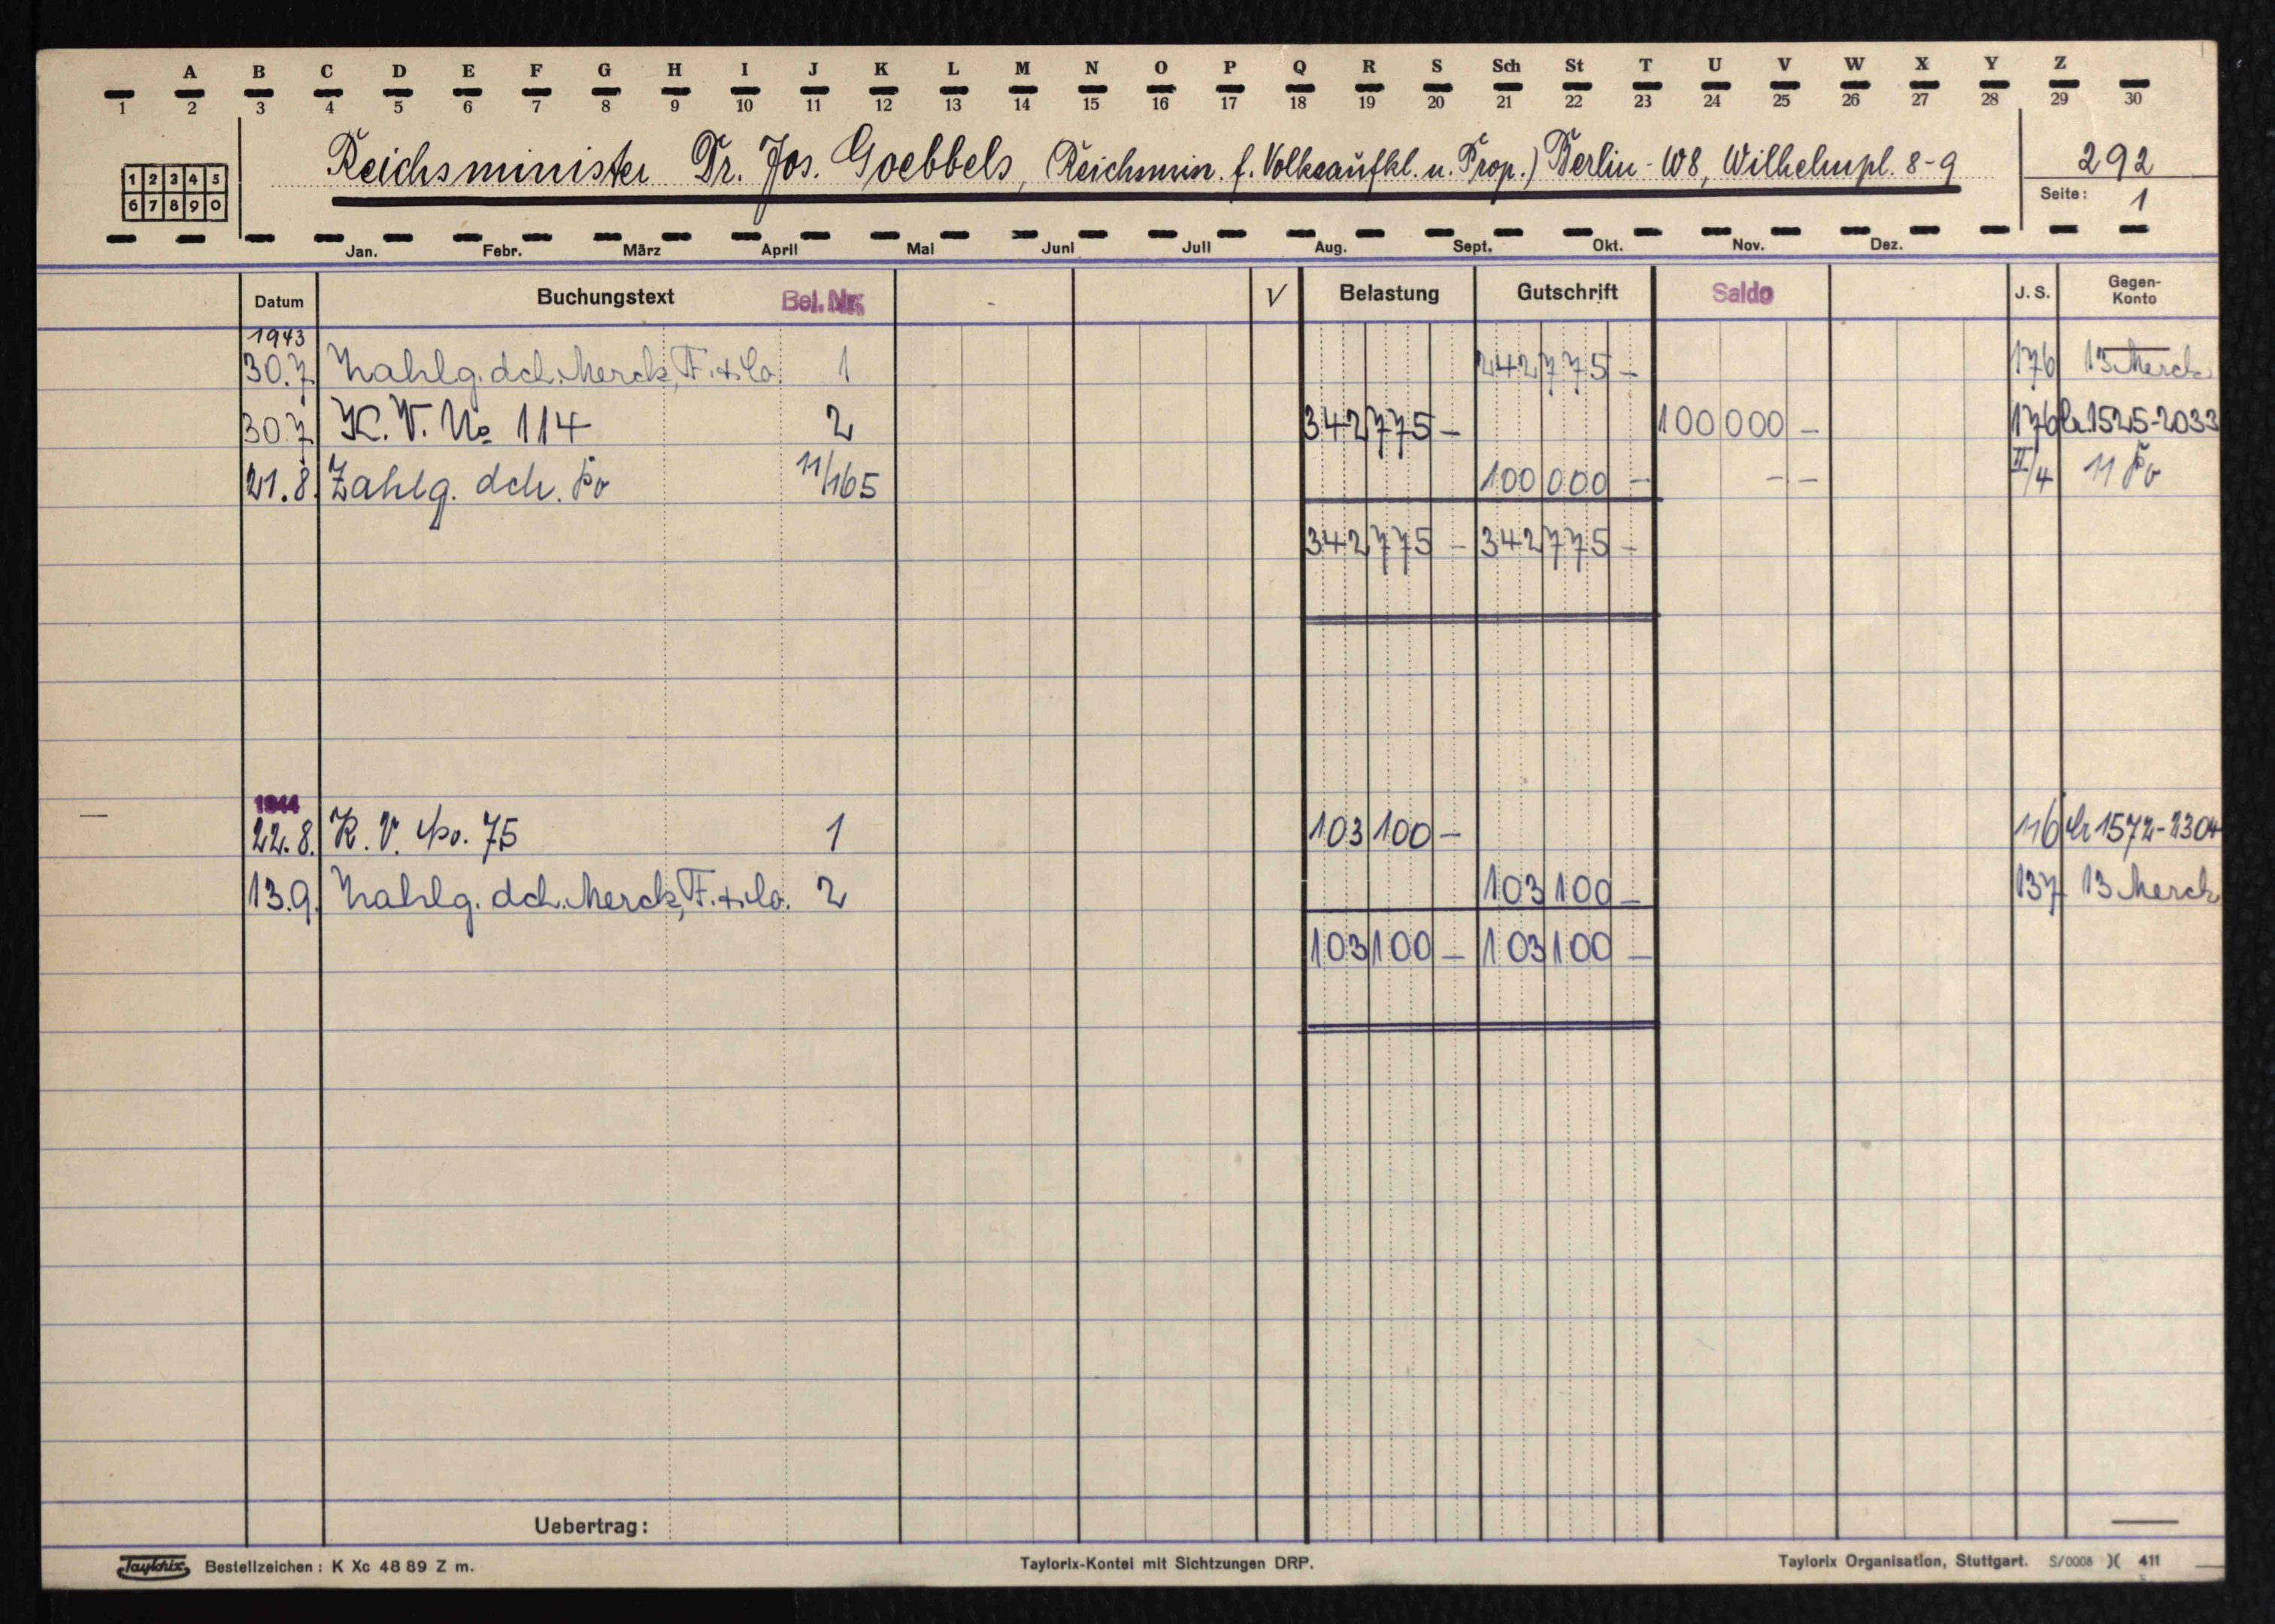 A B C D E F G H I J K L M N O P Q R S Sch St T U V W X Y Z
1 2 3 4 5 6 7 8 9 10 11 12 13 14 15 16 17 18 19 20 21 22 23 24 25 26 27 28 29 30
Reichsminister Dr. Jos. Goebbels, (Reichsmin. f. Volksaufkl. u. Prop.) Berlin-W8, Wilhelmpl. 8-9
292
1 2 3 4 5
6 7 8 9 0
Seite: 1
Jan. Febr. März April Mai Juni Juli Aug. Sept. Okt. Nov. Dez.
Datum Buchungstext Bel. Nr. V Belastung Gutschrift Saldo J. S. Gegen-Konto
1943
30.7. Zahlg. dch. Merck, F. & Co. 1 242 775 – 176 13 Merck
30.7. K. V. No 114 2 342 775 – 100 000 – 176 1525-2033
21.8. Zahlg. dch. Po 11/165 100 000 – – – II/4 11 Po
342 775 – 342 775 –
1944
22.8. K. V. No. 75 1 103 100 – 116 1572-2304
13.9. Zahlg. dch. Merck, F. & Co. 2 103 100 – 137 13 Merck
103 100 – 103 100 –
Uebertrag:
Taylorix Bestellzeichen: K Xc 48 89 Z m. Taylorix-Kontei mit Sichtzungen DRP. Taylorix Organisation, Stuttgart. S/0008 )( 411